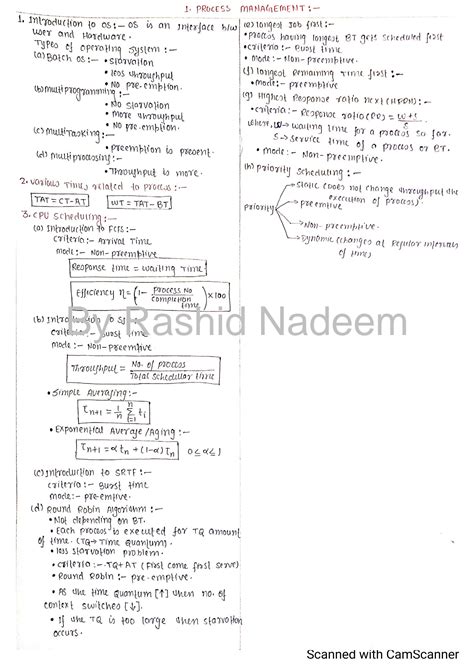 1. PROCESS MANAGEMENT :-
1. Introduction to OS :- OS is an interface b/w
user and Hardware.
Types of operating system :-
(a) Batch OS :- • starvation
• less throughput
• No pre-emption.
(b) multiprogramming :-
• No starvation
• more throughput
• No pre-emption.
(c) multitasking :-
• preemption is present.
(d) multiprocessing :-
• Throughput is more.
2. various Times related to process :-
TAT = CT - AT WT = TAT - BT
3. CPU Scheduling :-
(a) Introduction to FCFS :-
criteria :- Arrival Time
mode :- Non-preemptive
Response time = waiting time
Efficiency η = (1 - process No / completion time) × 100
(b) Introduction to SJF :-
criteria :- Burst time
mode :- Non-preemptive
Throughput = No. of process / Total schedular time
• Simple Averaging :-
τn+1 = 1/n Σ ti n i=1
• Exponential Average/Aging :-
τn+1 = α tn + (1-α) τn 0 ≤ α ≤ 1
(c) Introduction to SRTF :-
criteria :- Burst time
mode :- pre-emtive.
(d) Round Robin Algorithm :-
• Not depending on BT.
• Each process is executed for TQ amount
of time. (TQ → Time Quantum)
• less starvation problem.
• criteria :- TQ + AT (First come first serve)
• Round Robin :- pre-emptive.
• As the time Quantum [↑] then no. of
context switches [↓].
• If the TQ is too large then starvation
occurs.
(e) longest Job first :-
• process having longest BT gets scheduled first
• criteria :- Burst time
• mode :- Non-preemptive.
(f) longest remaining time first :-
• mode :- preemptive
(g) Highest Response ratio next (HRRN) :-
• criteria :- Response ratio (RR) = w+s / s
where, w → waiting time for a process so far.
s → service time of a process or BT.
• mode :- Non-preemptive.
(h) priority scheduling :-
priority
static (does not change throughput the
execution of process)
preemptive
Non-preemptive.
Dynamic (changes at regular intervals
of time)
By Rashid Nadeem
Scanned with CamScanner